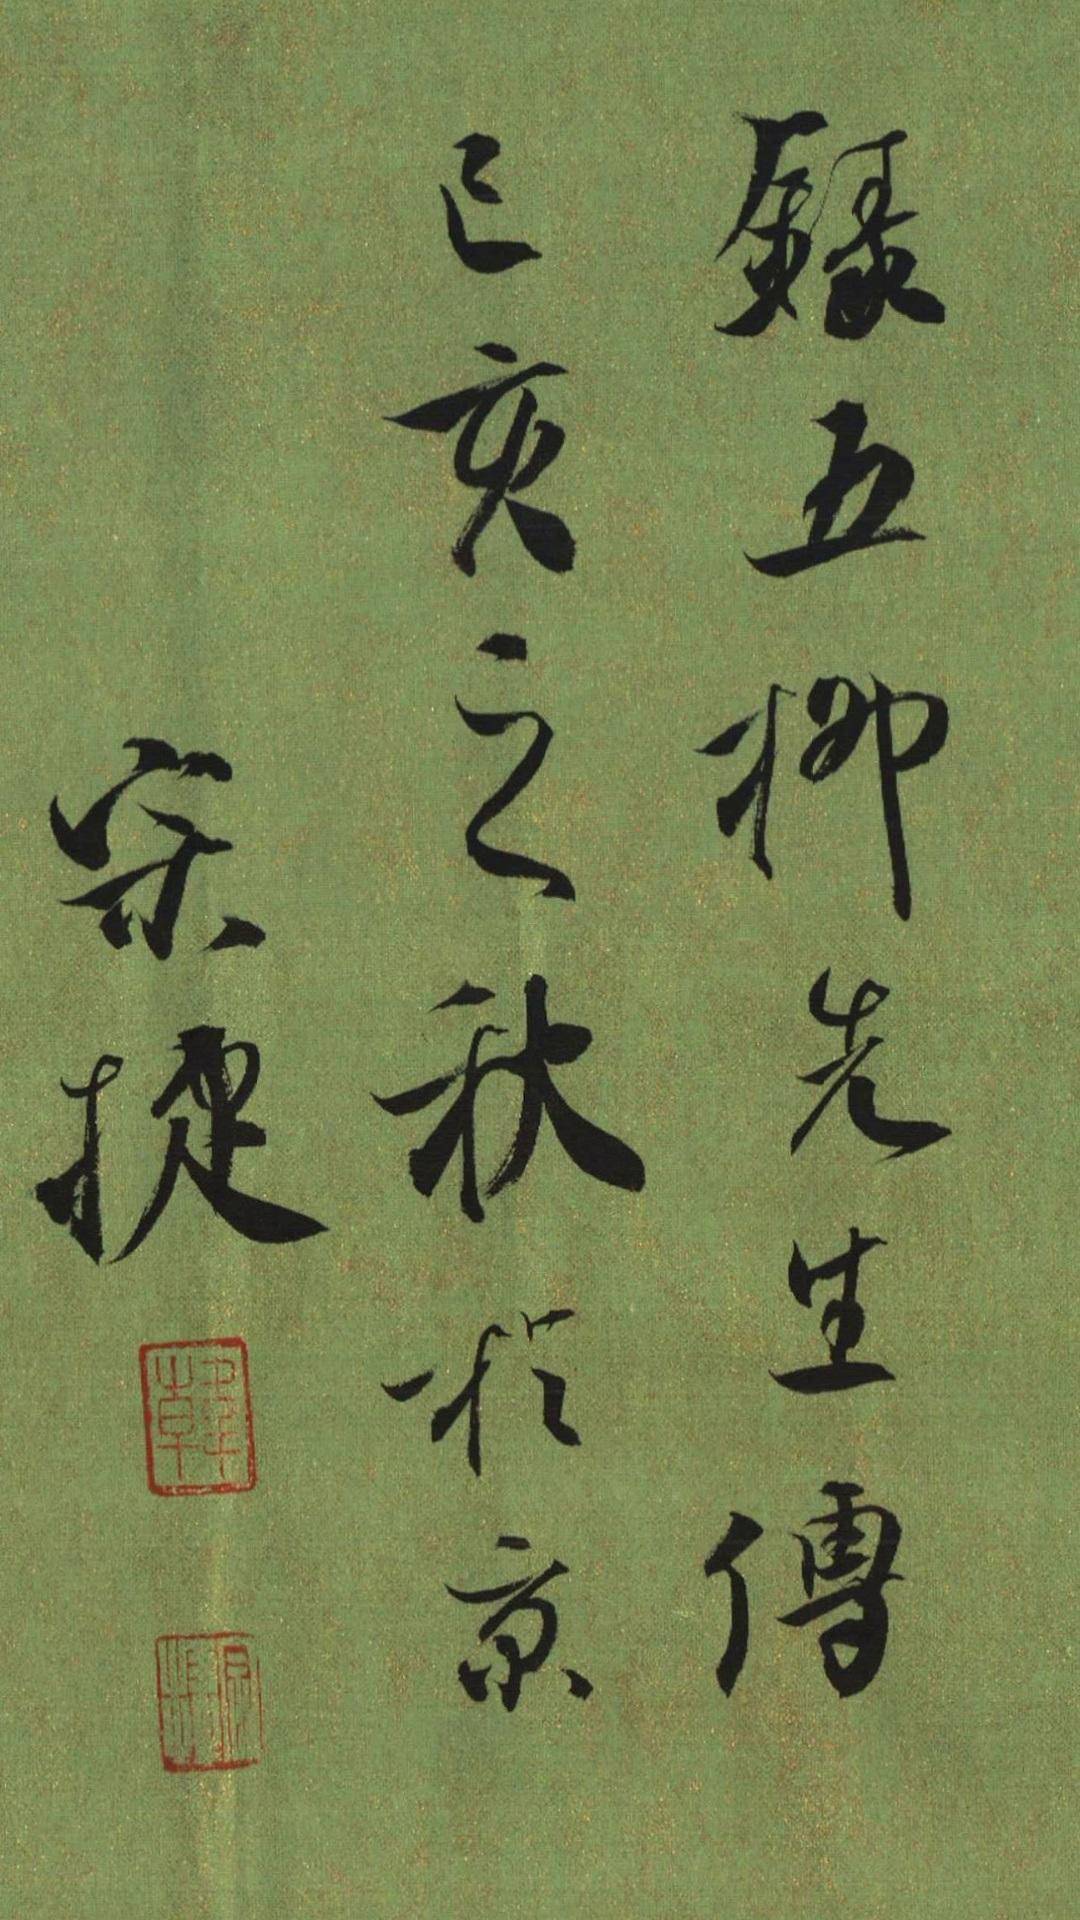 錄五柳先生傳
己亥之秋於京
宋捷